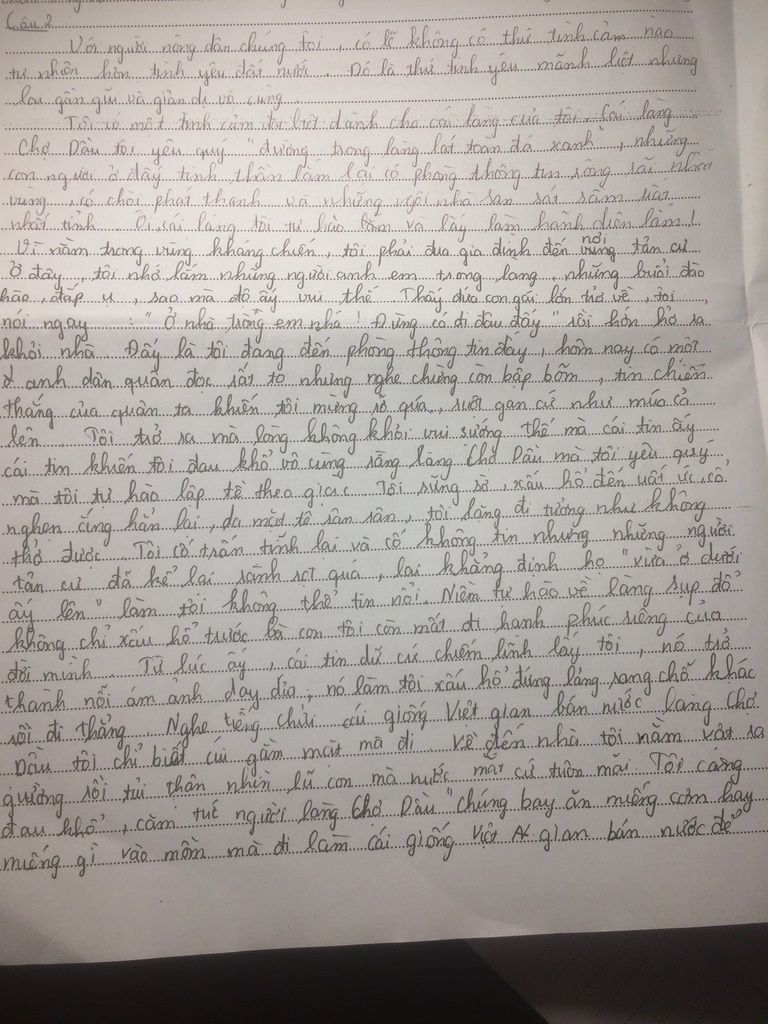 Câu 2
Với người nông dân chúng tôi, có lẽ không có thứ tình cảm nào
tự nhiên hơn tình yêu đất nước. Đó là thứ tình yêu mãnh liệt nhưng
lại gần gũi và giản dị vô cùng
Tôi có một tình cảm đặc biệt dành cho cái làng của tôi. Cái làng
Chợ Dầu tôi yêu quý "đường trong làng lát toàn đá xanh", những
con người ở đây tinh thần lắm lại có phòng thông tin rộng rãi nhất
vùng, có chòi phát thanh và những ngôi nhà san sát sầm uất
nhất tỉnh. Ôi cái làng tôi tự hào lắm và lấy làm hãnh diện lắm!
Vì nằm trong vùng kháng chiến, tôi phải đưa gia đình đến nơi tản cư
Ở đây, tôi nhớ lắm những người anh em trong làng, những buổi đào
hào, đắp ụ, sao mà độ ấy vui thế Thấy đứa con gái lớn trở về, tôi
nói ngay : "Ở nhà trông em nhá! Đừng có đi đâu đấy" rồi hớn hở ra
khỏi nhà. Đấy là tôi đang đến phòng thông tin đấy, hôm nay có một
anh dân quân đọc rất to nhưng nghe chừng còn bập bõm, tin chiến
thắng của quân ta khiến tôi mừng rỡ quá, ruột gan cứ như múa cả
lên. Tôi trở ra mà lòng không khỏi vui sướng thế mà cái tin ấy
cái tin khiến tôi đau khổ vô cùng rằng làng Chợ Dầu mà tôi yêu quý
mà tôi tự hào lập tề theo giặc Tôi sững sờ, xấu hổ đến uất ức, cổ
nghẹn ắng hẳn lại, da mặt tê rân rân, tôi lặng đi tưởng như không
thở được. Tôi cố trấn tĩnh lại và cố không tin nhưng những người
tản cư đã kể lại rành rọt quá, lại khẳng định họ "vừa ở dưới
ấy lên" làm tôi không thể tin nổi. Niềm tự hào về làng sụp đổ
không chỉ xấu hổ trước bà con tôi còn mất đi hạnh phúc riêng của
đời mình. Từ lúc ấy, cái tin dữ cứ chiếm lĩnh lấy tôi, nó trở
thành nỗi ám ảnh day dứa, nó làm tôi xấu hổ đứng lảng sang chỗ khác
rồi đi thẳng. Nghe tiếng chửi cái giống Việt gian bán nước làng Chợ
Dầu tôi chỉ biết cúi gằm mặt mà đi Về đến nhà tôi nằm vật ra
giường rồi tủi thân nhìn lũ con mà nước mắt cứ tuôn mãi Tôi càng
đau khổ, căm tức người làng Chợ Dầu "chúng bay ăn miếng cơm hay
miếng gì vào mồm mà đi làm cái giống Việt gian bán nước để